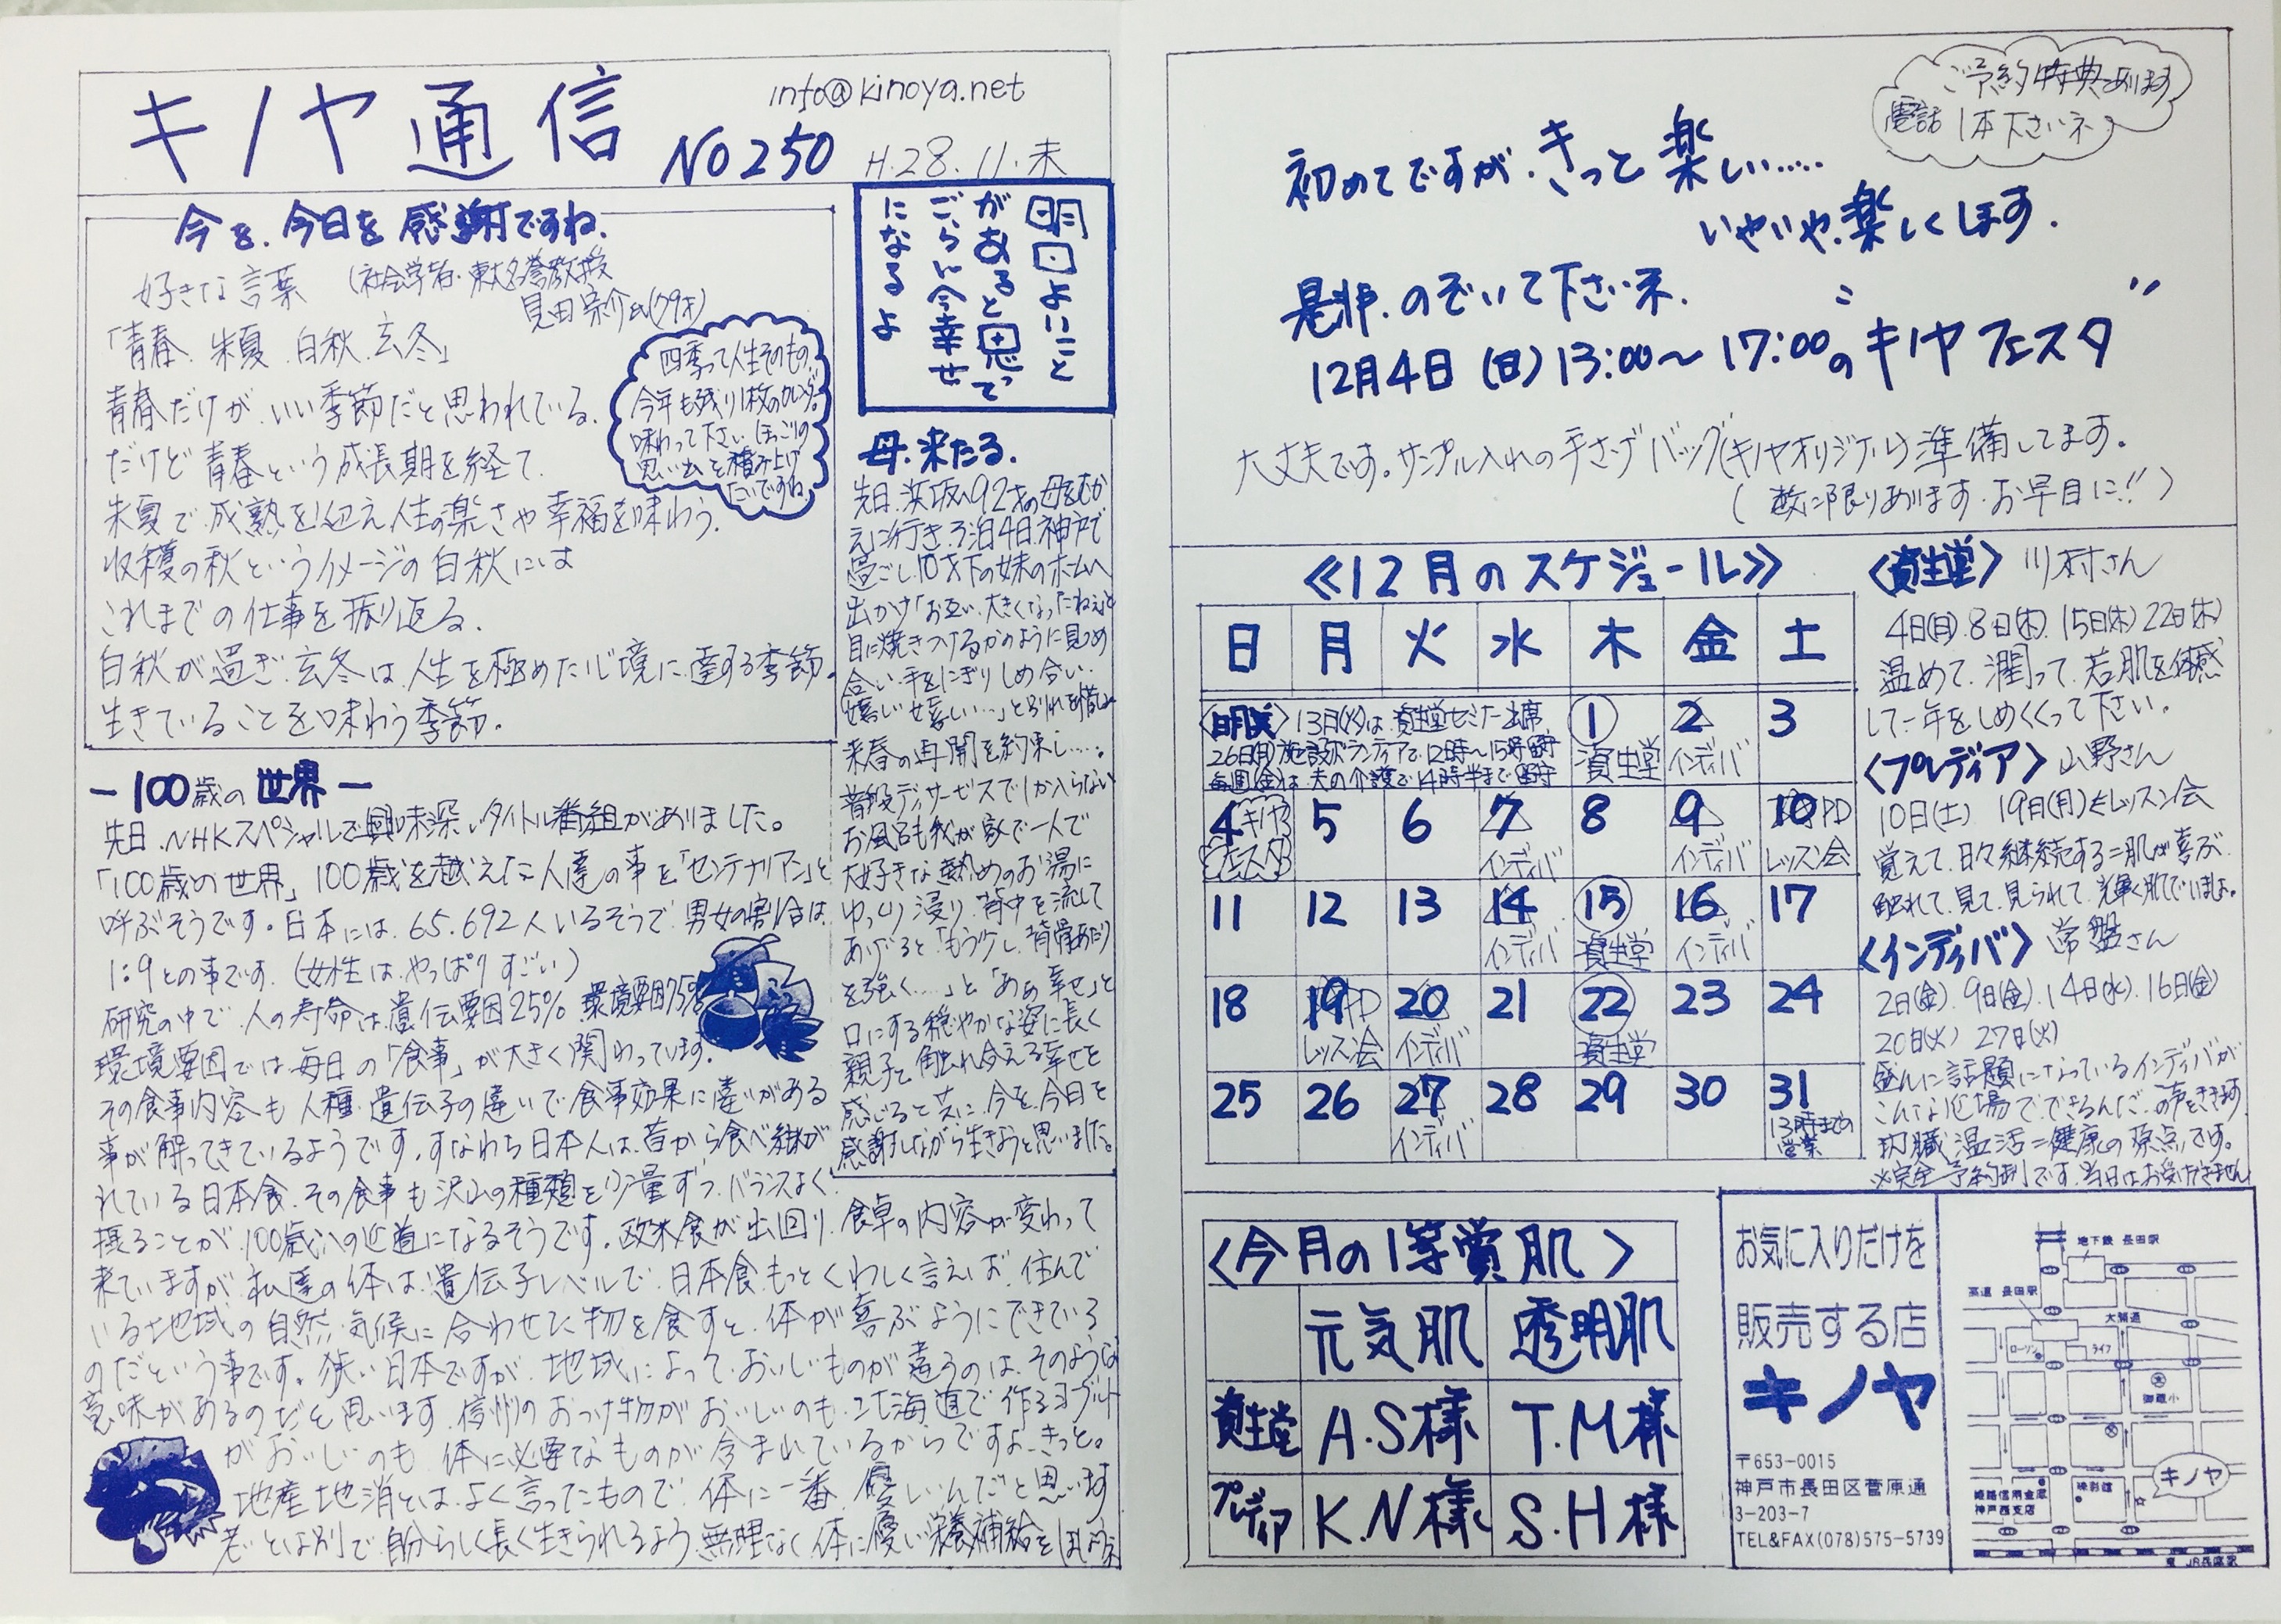 キノヤ通信
info@kinoya.net
NO250 H.28.11.末
今を、今日を感謝ですね.
好きな言葉 (社会学者・東大名誉教授
見田宗介氏(79才)
「青春.朱夏.白秋.玄冬」
青春だけが.いい季節だと思われている.
だけど青春という成長期を経て.
朱夏で.成熟を迎え人生の楽さや幸福を味わう.
収穫の秋というイメージの白秋には
これまでの仕事を振り返る.
白秋が過ぎ.玄冬は.人生を極めた心境に.達する季節.
生きていることを味わう季節.
四季って人生そのもの.
今年も残り1枚のカレンダー.
味わって下さい.ほっこりの
思い出を積み上げ
たいですね
明日よいこと
があると思って
ごらん今幸せ
になるよ
母.来たる.
先日.浜坂へ92才の母をむか
えに行き3泊4日神戸で
過ごし.10才下の妹のホームへ
出かけ「お互い.大きくなったねえ」と
目に焼きつけるかのように見つめ
合い.手をにぎりしめ合い.
「嬉しい嬉しい…」と別れを惜しみ
来春の再開を約束し….
普段ディサービスでしか入らない
お風呂も我が家で一人で
大好きな熱めのお湯に
ゆっくり浸り.背中を流して
あげると「もう少し.背骨あたり
を強く……」と「あぁ幸せ」と
口にする穏やかな姿に長く
親子で触れ合える幸せを
感じると共に.今を.今日を
感謝しながら生きようと思いました.
ー100歳の世界ー
先日.NHKスペシャルで興味深いタイトル番組がありました。
「100歳の世界」100歳を越えた人達の事を「センテナリアン」と
呼ぶそうです。日本には.65.692人いるそうで.男女の割合は.
1:9との事です.(女性は.やっぱりすごい)
研究の中で.人の寿命は.遺伝要因25%.環境要因75%
環境要因では毎日の「食事」が大きく関わっています.
その食事内容も人種.遺伝子の違いで食事効果に違いがある
事が解ってきているようです.すなわち日本人は.昔から食べ継が
れている日本食.その食事も沢山の種類を少量ずつ.バランスよく
摂ることが.100歳への近道になるそうです.欧米食が出回り.食卓の内容が変わって
来ていますが.私達の体は.遺伝子レベルで.日本食.もっとくわしく言えば.住んで
いる地域の自然.気候に合わせた物を食すと.体が喜ぶようにできている
のだという事です。狭い日本ですが.地域によって.おいしいものが違うのは.そのような
意味があるのだと思います.信州のおつけ物がおいしいのも.北海道で作るヨーグルト
がおいしいのも.体に必要なものが含まれているからですよ.きっと。
地産地消とは.よく言ったもので.体に一番.優しいんだと思います
老いとは別で.自分らしく長く生きられるよう.無理なく.体に優しい栄養補給を
ご予約特典あります
電話1本下さいネ
初めてですが.きっと楽しい.....
いやいや.楽しくします.
是非.のぞいて下さいネ.
12月4日(日)13:00〜17:00の キノヤフェスタ
大丈夫です。サンプル入れの手さげバッグ(キノヤオリジナル)準備してます.
(数に限りあります.お早目に!!)
≪12月のスケジュール≫
日 月 火 水 木 金 土
〈日時変〉13日(火)は.資生堂セミナー出席.
26日(月)施設ボランティアで.12時〜15時留守
毎週(金)は.夫の介護で14時半まで留守
1 2 3
資生堂 インディバ
4 5 6 7 8 9 10
キノヤフェスタ インディバ インディバ PDレッスン会
11 12 13 14 15 16 17
インディバ 資生堂 インディバ
18 19 20 21 22 23 24
PDレッスン会 インディバ 資生堂
25 26 27 28 29 30 31
インディバ 13時までの営業
〈資生堂〉川村さん
4日(日).8日(木).15日(木)22日(木)
温めて.潤って.若肌を体感
して一年をしめくくって下さい.
〈プレディア〉山野さん
10日(土) 19日(月)とレッスン会
覚えて.日々継続する=肌が喜ぶ.
触れて.見て.見られて.輝く肌でいましょ.
〈インディバ〉常盤さん
2日(金).9日(金).14日(水).16日(金)
20日(火) 27日(火)
盛んに話題になっているインディバが
こんな近場で.できるんだ.の声をききます.
内臓温活=健康の原点です。
※完全予約制です.当日はお受けできません
〈今月の1等賞肌〉
元気肌 透明肌
資生堂 A.S様 T.M様
プレディア K.N様 S.H様
お気に入りだけを
販売する店
キノヤ
〒653-0015
神戸市長田区菅原通
3-203-7
TEL&FAX(078)575-5739
地下鉄 長田駅
高速 長田駅
大開通
ローソン
ライフ
御蔵小
キノヤ
姫路信用金庫
神戸西支店
JR兵庫駅